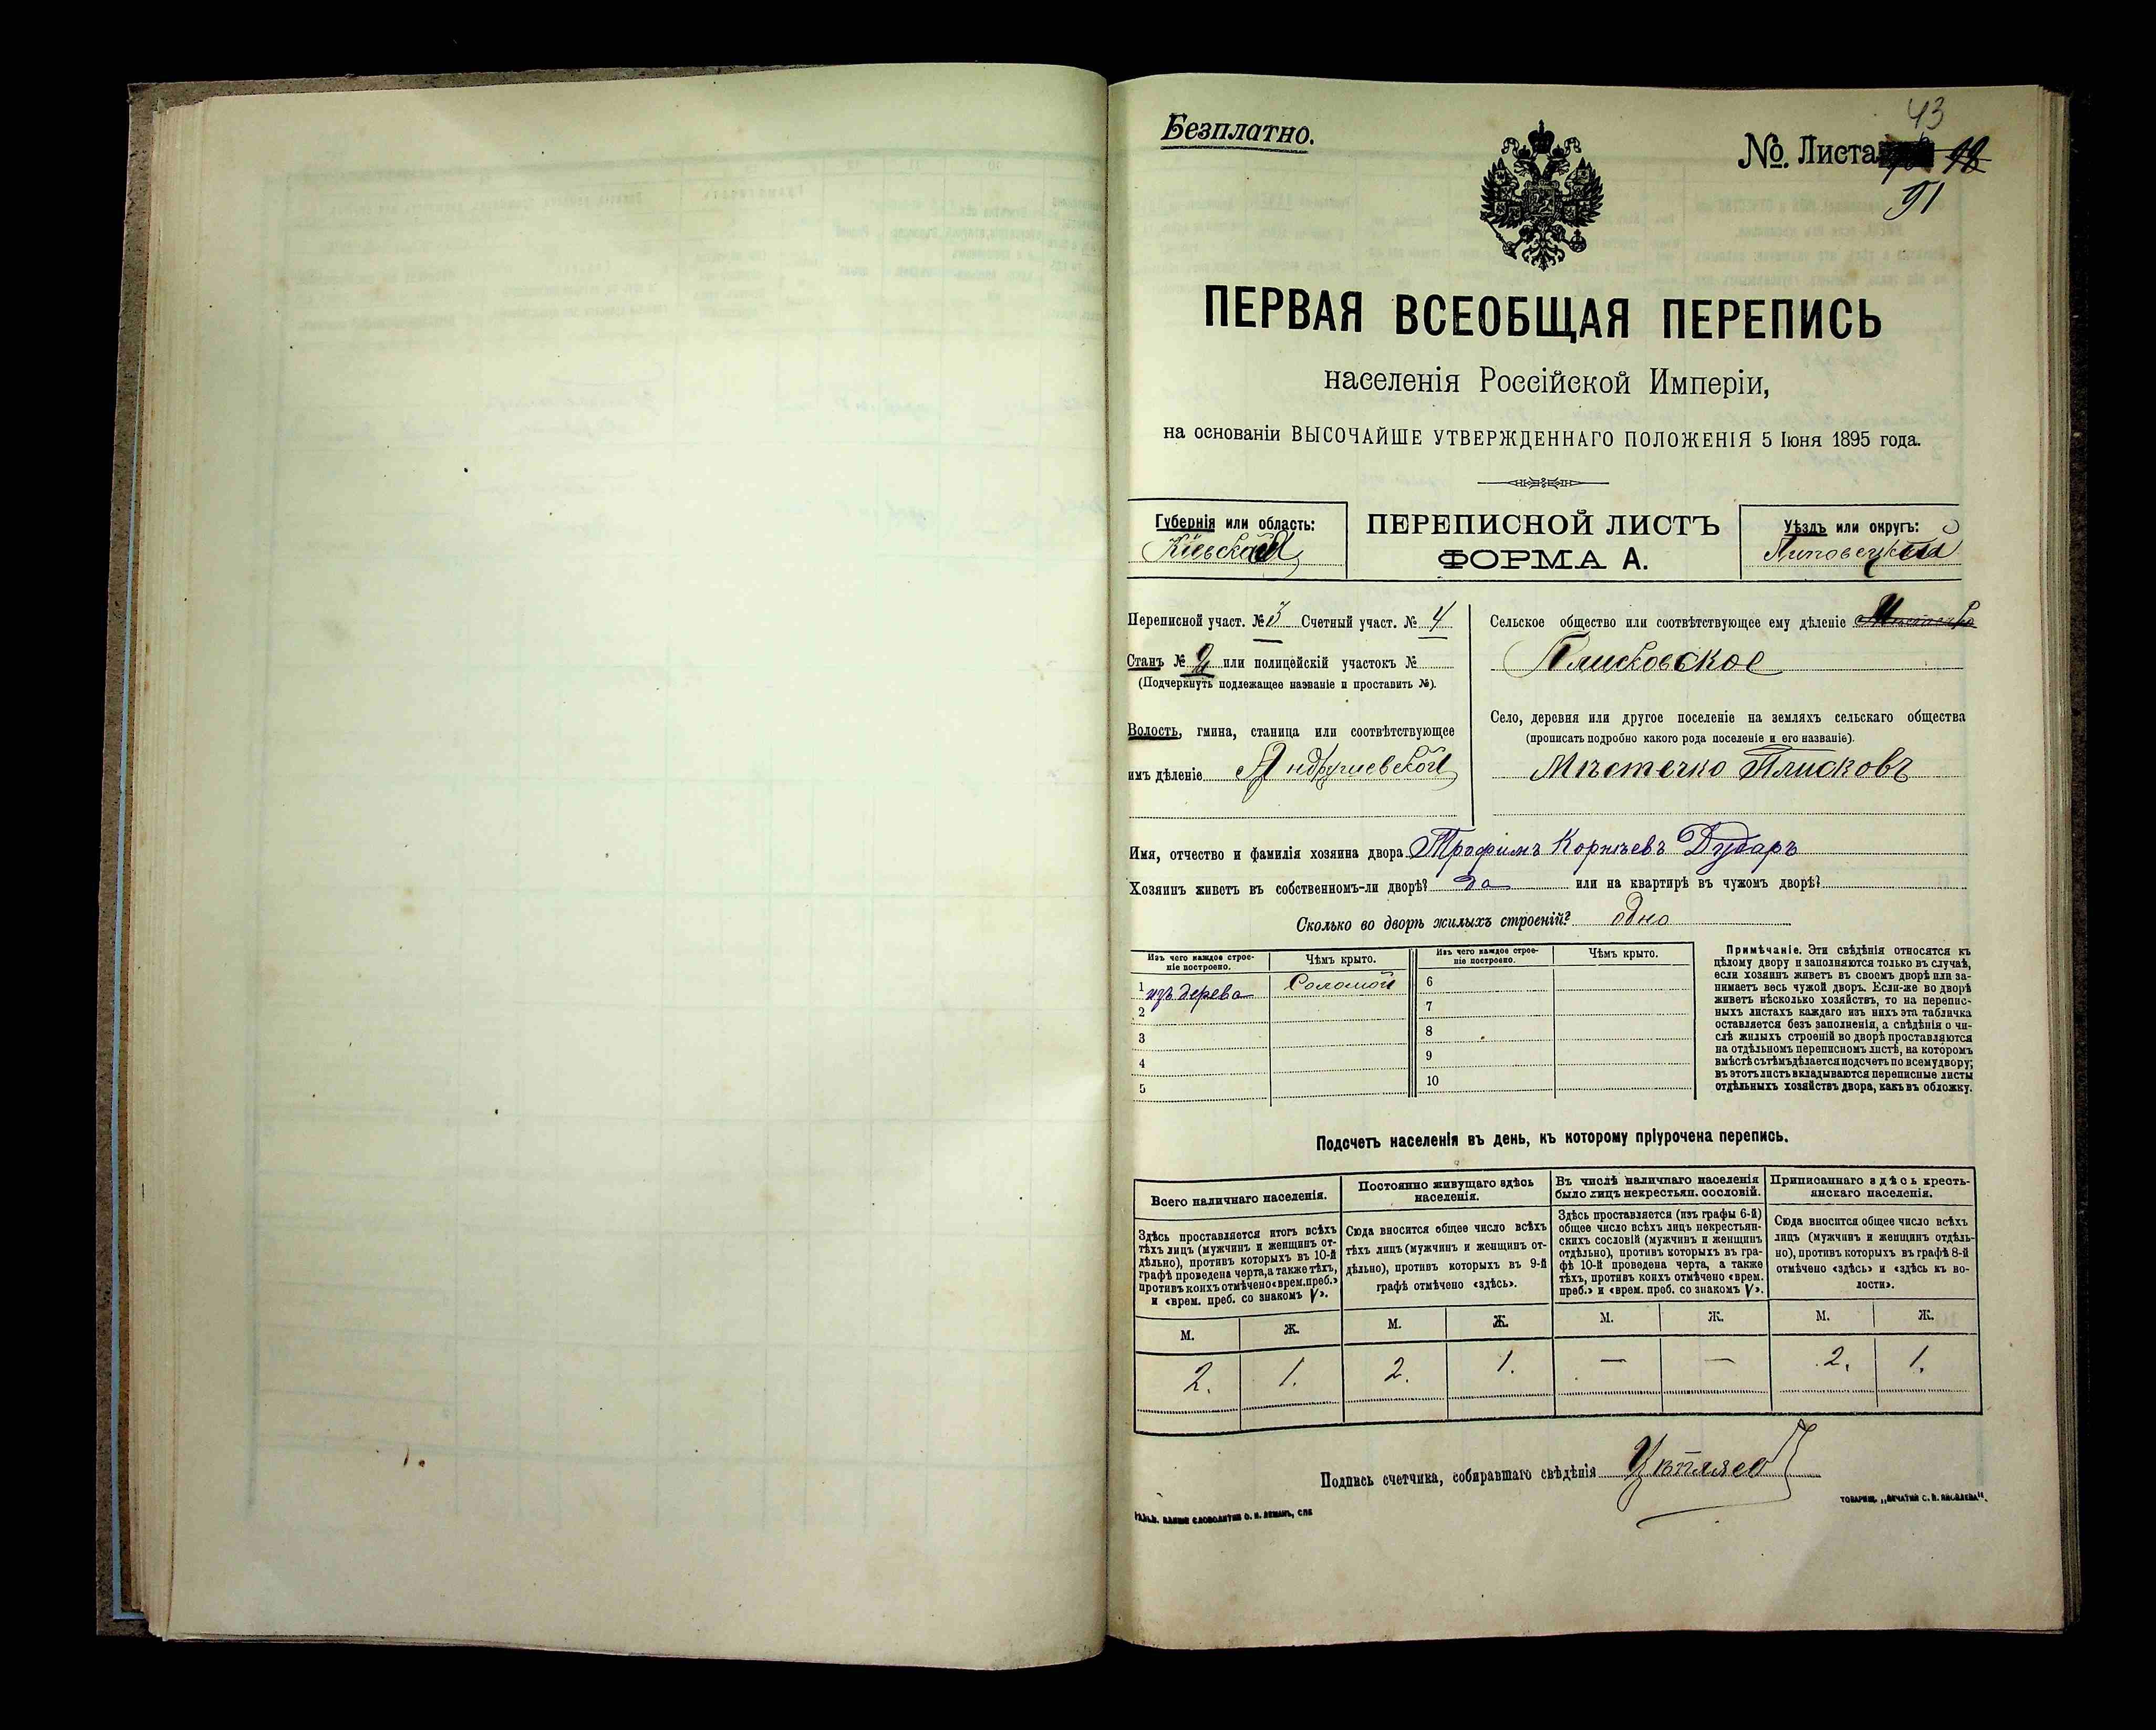 43
Безплатно.
№ Листа
91
ПЕРВАЯ ВСЕОБЩАЯ ПЕРЕПИСЬ
населенія Россійской Имперіи,
на основаніи ВЫСОЧАЙШЕ УТВЕРЖДЕННАГО ПОЛОЖЕНІЯ 5 Іюня 1895 года.
Губернія или область:
Кіевская
ПЕРЕПИСНОЙ ЛИСТЪ
ФОРМА А.
Уѣздъ или округъ:
Липовецкій
Переписной участ. № 3 Счетный участ. № 4
Станъ № 2 или полицейскій участокъ №
(Подчеркнуть подлежащее названіе и проставить №).
Волость, гмина, станица или соотвѣтствующее
имъ дѣленіе
Сельское общество или соотвѣтствующее ему дѣленіе
Плисковское
Село, деревня или другое поселеніе на земляхъ сельскаго общества
(прописать подробно какого рода поселеніе и его названіе).
Мѣстечко Плисковъ
Имя, отчество и фамилія хозяина двора Трофимъ Корнѣевъ Дударъ
Хозяинъ живетъ въ собственномъ-ли дворѣ? да или на квартирѣ въ чужомъ дворѣ?
Сколько во дворѣ жилыхъ строеній? одно
Изъ чего каждое строе-
ніе построено.
Чѣмъ крыто.
Изъ чего каждое строе-
ніе построено.
Чѣмъ крыто.
1 изъ дерева Соломой 6
2 7
3 8
4 9
5 10
Примѣчаніе. Эти свѣдѣнія относятся къ
цѣлому двору и заполняются только въ случаѣ,
если хозяинъ живетъ въ своемъ дворѣ или за-
нимаетъ весь чужой дворъ. Если-же во дворѣ
живетъ нѣсколько хозяйствъ, то на перепис-
ныхъ листахъ каждаго изъ нихъ эта табличка
оставляется безъ заполненія, а свѣдѣнія о чи-
слѣ жилыхъ строеній во дворѣ проставляются
на отдѣльномъ переписномъ листѣ, на которомъ
вмѣстѣ съ тѣмъ дѣлается подсчетъ по всему двору;
въ этотъ листъ вкладываются переписные листы
отдѣльныхъ хозяйствъ двора, какъ въ обложку.
Подсчетъ населенія въ день, къ которому пріурочена перепись.
Всего наличнаго населенія.
Здѣсь проставляется итогъ всѣхъ
тѣхъ лицъ (мужчинъ и женщинъ от-
дѣльно), противъ которыхъ въ 10-й
графѣ проведена черта, а также тѣхъ,
противъ коихъ отмѣчено «врем. преб.»
и «врем. преб. со знакомъ V».
Постоянно живущаго здѣсь
населенія.
Сюда вносится общее число всѣхъ
тѣхъ лицъ (мужчинъ и женщинъ от-
дѣльно), противъ которыхъ въ 9-й
графѣ отмѣчено «здѣсь».
Въ числѣ наличнаго населенія
было лицъ некрестьян. сословій.
Здѣсь проставляется (изъ графы 6-й)
общее число всѣхъ лицъ некрестьян-
скихъ сословій (мужчинъ и женщинъ
отдѣльно), противъ которыхъ въ гра-
фѣ 10-й проведена черта, а также
тѣхъ, противъ коихъ отмѣчено «врем.
преб.» и «врем. преб. со знакомъ V».
Приписаннаго здѣсь кресть-
янскаго населенія.
Сюда вносится общее число всѣхъ
лицъ (мужчинъ и женщинъ отдѣль-
но), противъ которыхъ въ графѣ 8-й
отмѣчено «здѣсь» и «здѣсь къ во-
лости».
М. Ж. М. Ж. М. Ж. М. Ж.
2. 1. 2. 1. — — 2. 1.
Подпись счетчика, собиравшаго свѣдѣнія